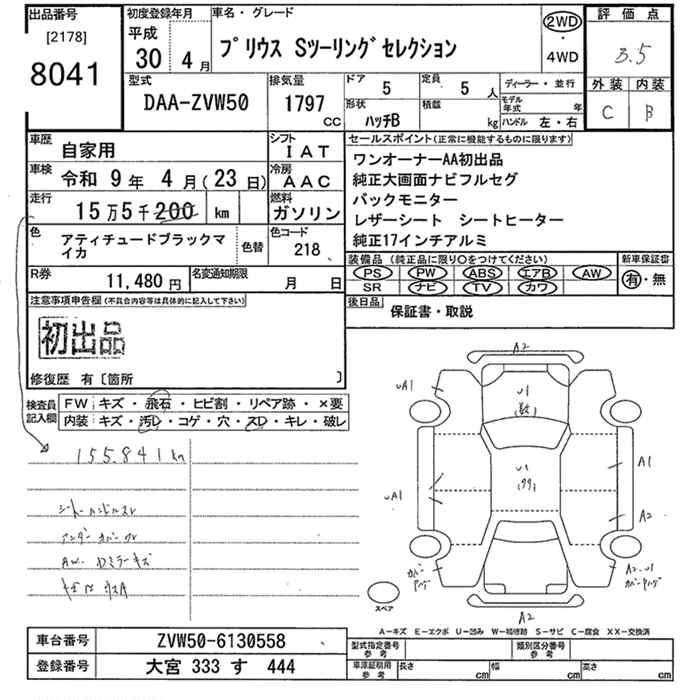 出品番号
[2178]
8041
初度登録年月
平成
30 4 月
車名・グレード
プリウス Sツーリングセレクション
2WD
・
4WD
評価点
3.5
外装 内装
C B
型式
DAA-ZVW50
排気量
1797
CC
ドア
5
定員
5 人
形状
ハッチB
積載
kg
ディーラー・並行
モデル年式 年
ハンドル 左・右
車歴
自家用
シフト
IAT
車検
令和 9年 4月(23日)
冷房
AAC
走行
15万5千200 km
燃料
ガソリン
色
アティチュードブラックマイカ
色替
色コード
218
R券
11,480 円
名変通知期限
月 日
セールスポイント(正常に機能するものに限ります)
ワンオーナーAA初出品
純正大画面ナビフルセグ
バックモニター
レザーシート シートヒーター
純正17インチアルミ
装備品 (純正品に限り○をつけてください)
PS PW ABS エアB AW
SR ナビ TV カワ
新車保証書
有・無
後日品
保証書・取説
注意事項申告欄(不具合内容等は具体的に記入して下さい)
初出品
修復歴 有〔箇所 〕
検査員
記入欄
FW キズ・飛石・ヒビ割・リペア跡・×要
内装 キズ・汚レ・コゲ・穴・スレ・キレ・破レ
155.841km
シート ハンドルスレ
アンダーカバーワレ
AW. Dミラーキズ
A2
uA1
U1
A1
U1
uA1
A2
A2.U1
A2
スペア
A-キズ E-エクボ U-凹み W-補修跡 S-サビ C-腐食 XX-交換済
車台番号
ZVW50-6130558
登録番号
大宮 333 す 444
型式指定番号
参考
類別区分番号
参考
車庫証明用
参考
長さ cm 幅 cm 高さ cm